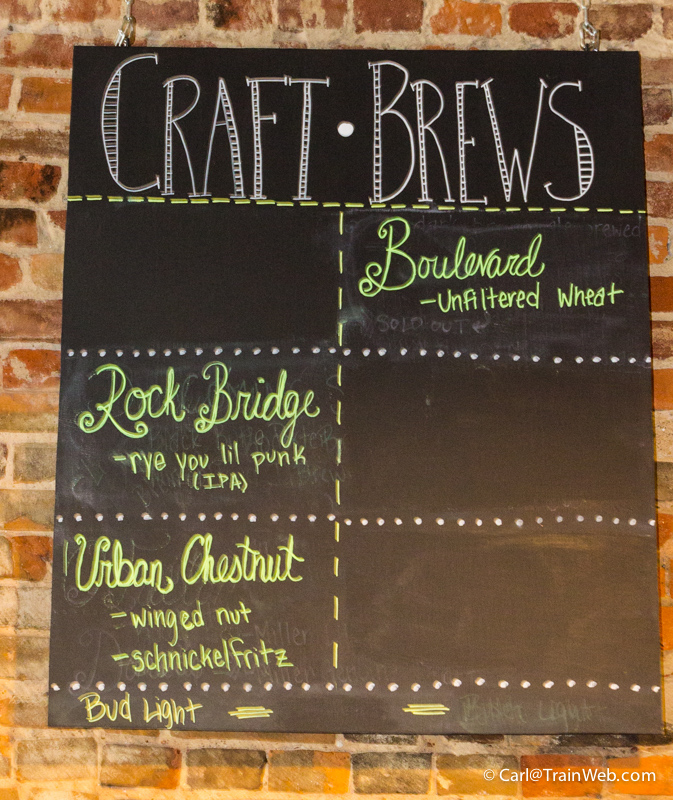 CRAFT • BREWS
Boulevard
-Unfiltered Wheat
SOLD OUT
Rock Bridge
-rye you lil punk
(IPA)
Urban Chestnut
-winged nut
-schnickelfritz
Bud Light
© Carl@TrainWeb.com